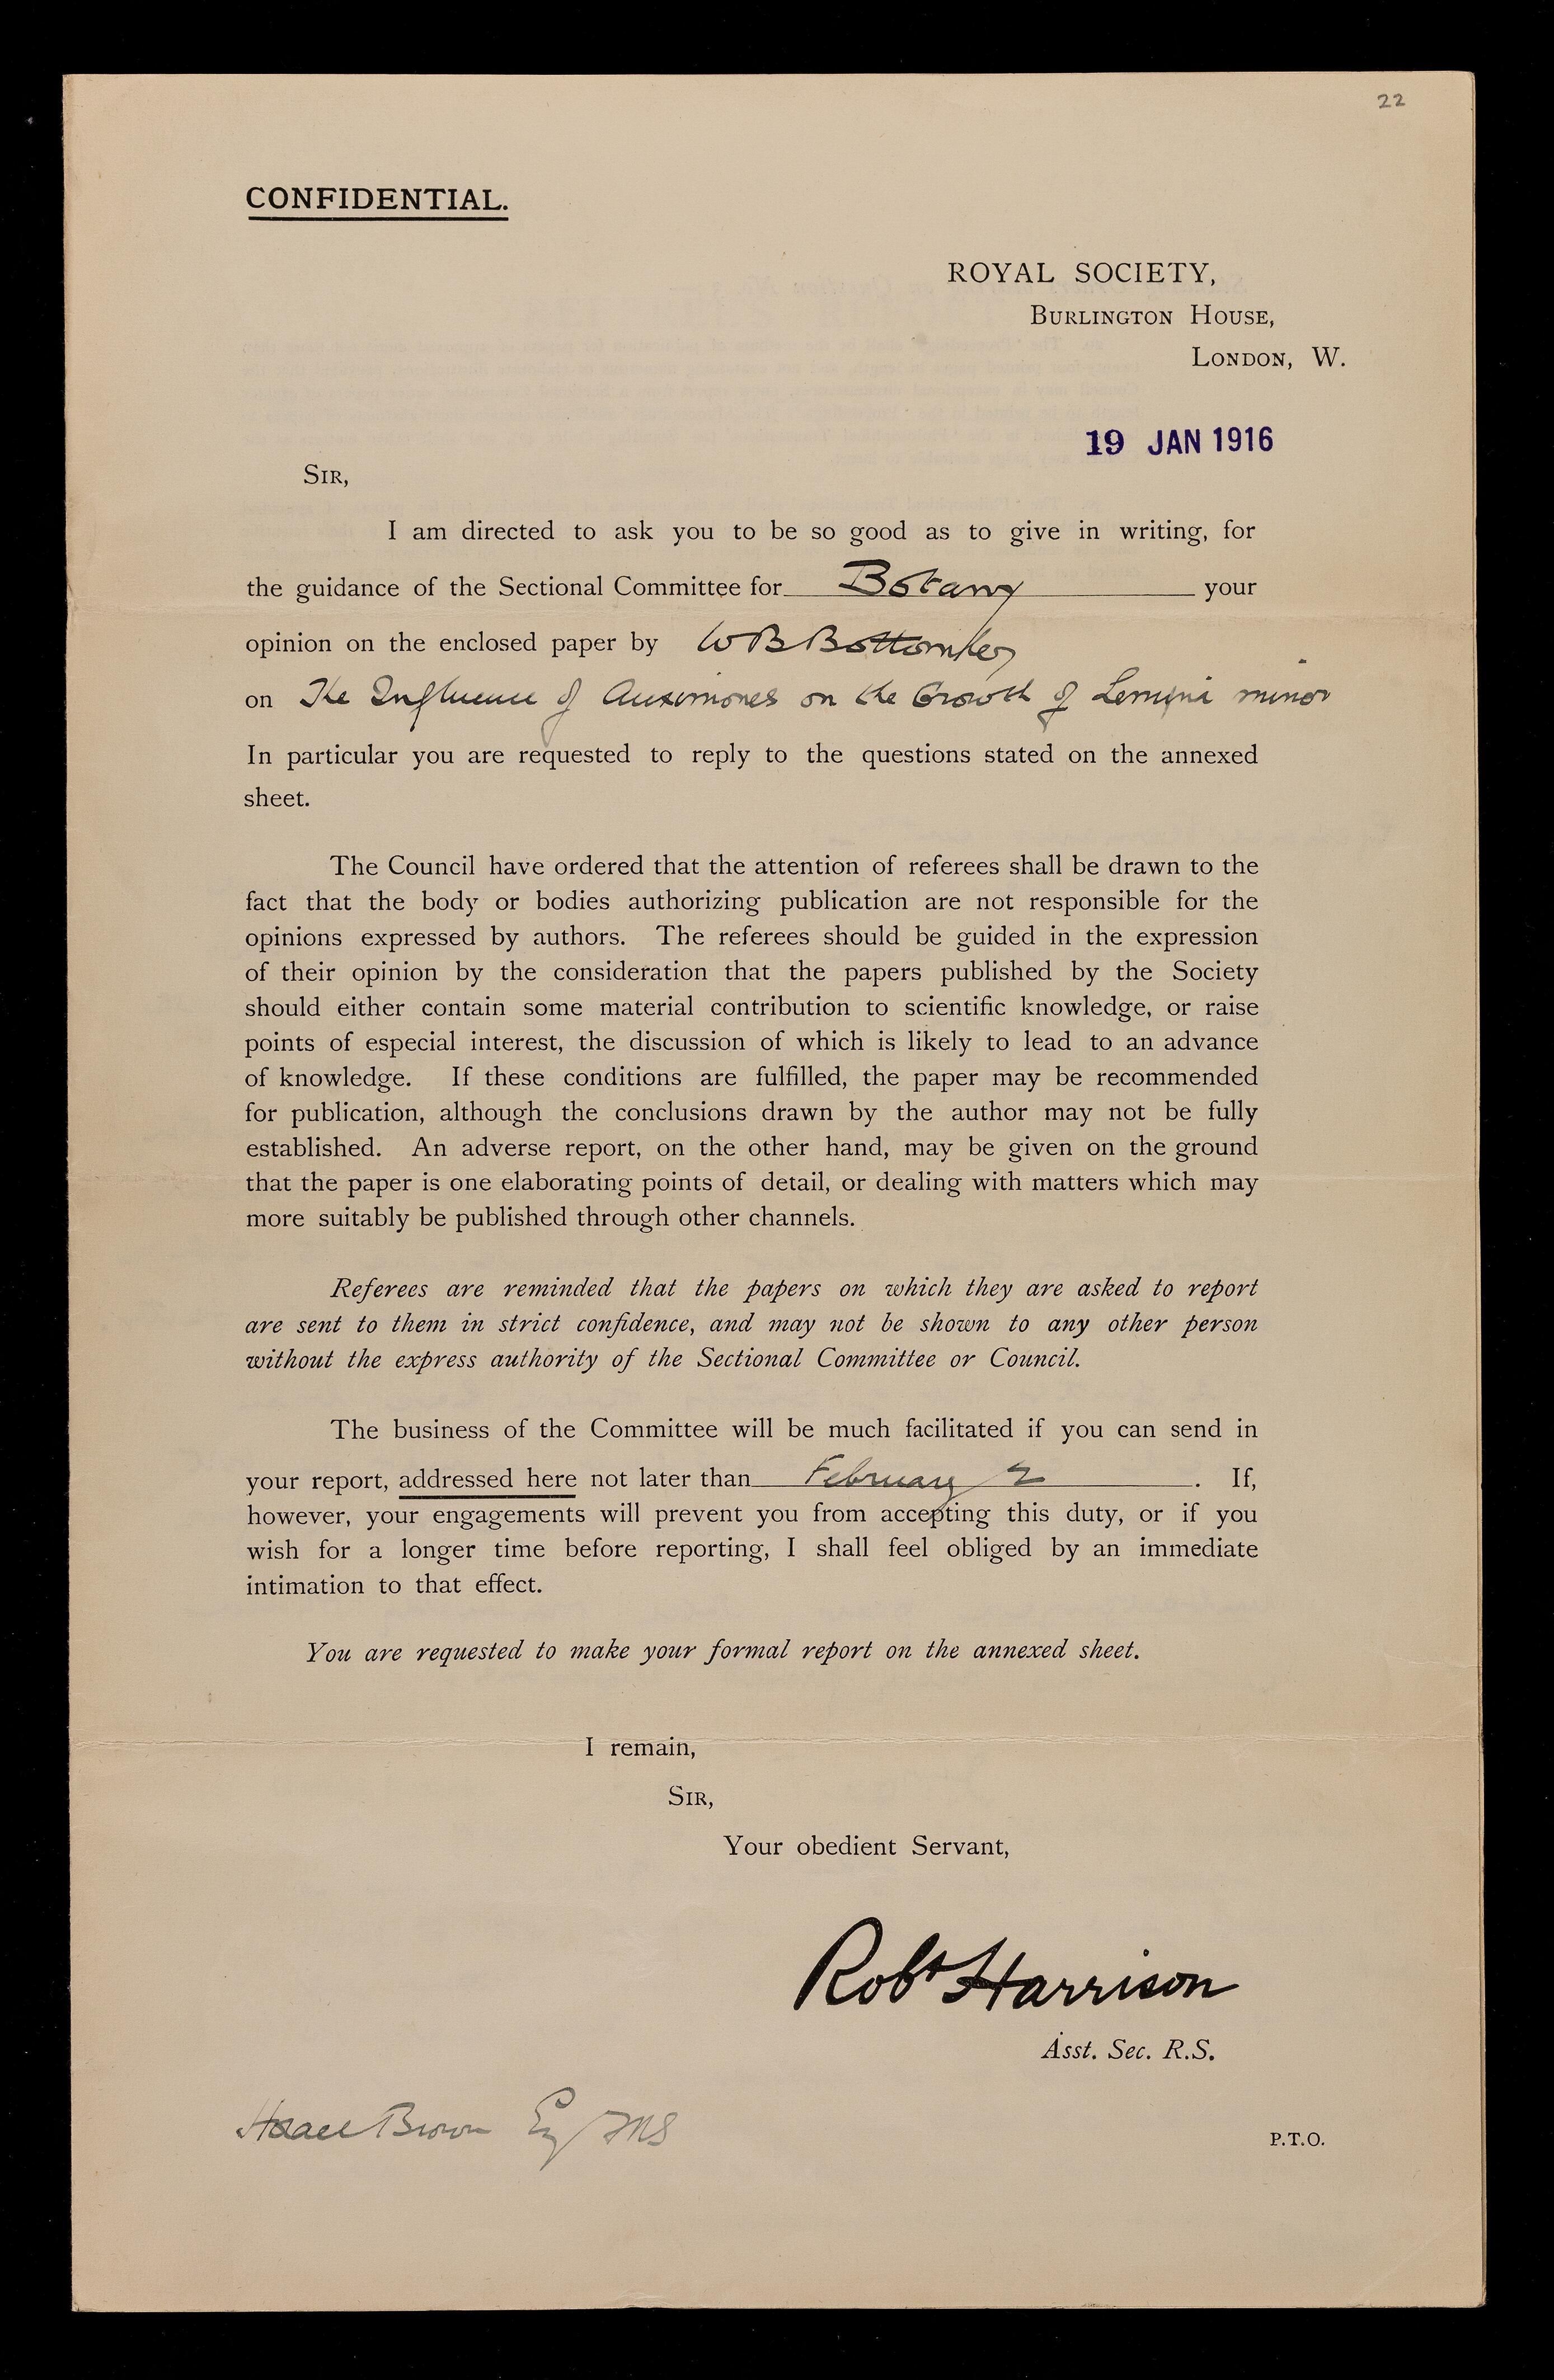 22
CONFIDENTIAL.
ROYAL SOCIETY,
BURLINGTON HOUSE,
LONDON, W.
19 JAN 1916
SIR,
I am directed to ask you to be so good as to give in writing, for
the guidance of the Sectional Committee for Botany your
opinion on the enclosed paper by W B Bottomley
on The Influence of Auximones on the Growth of Lemna minor
In particular you are requested to reply to the questions stated on the annexed
sheet.
The Council have ordered that the attention of referees shall be drawn to the
fact that the body or bodies authorizing publication are not responsible for the
opinions expressed by authors. The referees should be guided in the expression
of their opinion by the consideration that the papers published by the Society
should either contain some material contribution to scientific knowledge, or raise
points of especial interest, the discussion of which is likely to lead to an advance
of knowledge. If these conditions are fulfilled, the paper may be recommended
for publication, although the conclusions drawn by the author may not be fully
established. An adverse report, on the other hand, may be given on the ground
that the paper is one elaborating points of detail, or dealing with matters which may
more suitably be published through other channels.
Referees are reminded that the papers on which they are asked to report
are sent to them in strict confidence, and may not be shown to any other person
without the express authority of the Sectional Committee or Council.
The business of the Committee will be much facilitated if you can send in
your report, addressed here not later than February 2. If,
however, your engagements will prevent you from accepting this duty, or if you
wish for a longer time before reporting, I shall feel obliged by an immediate
intimation to that effect.
You are requested to make your formal report on the annexed sheet.
I remain,
SIR,
Your obedient Servant,
Robt Harrison
Asst. Sec. R.S.
Horace Brown Esq FRS
P.T.O.